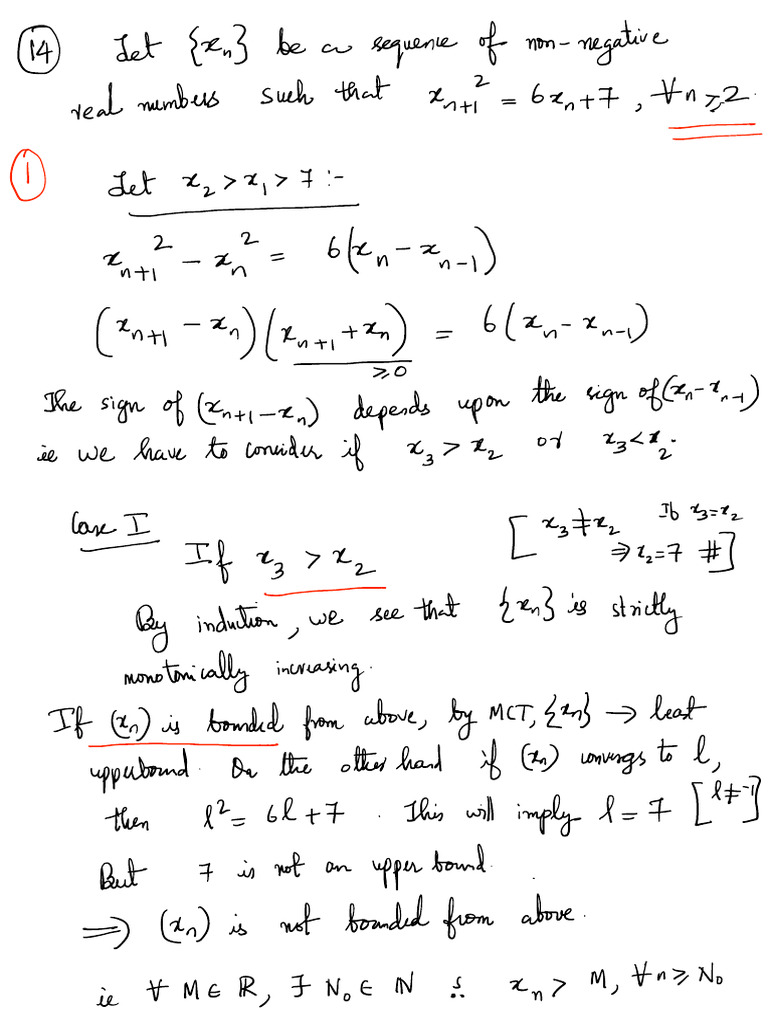 (14) Let {xₙ} be a sequence of non-negative
real numbers such that xₙ₊₁² = 6xₙ+7, ∀n≥2.
(1) Let x₂ > x₁ > 7 :-
xₙ₊₁² - xₙ² = 6(xₙ - xₙ₋₁)
(xₙ₊₁ - xₙ)(xₙ₊₁ + xₙ) = 6(xₙ - xₙ₋₁)
≥0
The sign of (xₙ₊₁ - xₙ) depends upon the sign of (xₙ - xₙ₋₁)
ie we have to consider if x₃ > x₂ or x₃ < x₂.
Case I
If x₃ > x₂
[x₃ ≠ x₂ If x₃ = x₂
⇒ x₂ = 7 #]
By induction, we see that {xₙ} is strictly
monotonically increasing.
If (xₙ) is bounded from above, by MCT, {xₙ} → least
upperbound. On the other hand if (xₙ) converges to l,
then l² = 6l + 7. This will imply l = 7 [l ≠ -1]
But 7 is not an upper bound.
⇒ (xₙ) is not bounded from above.
ie ∀ M ∈ ℝ, ∃ N₀ ∈ ℕ s: xₙ > M, ∀ n ≥ N₀